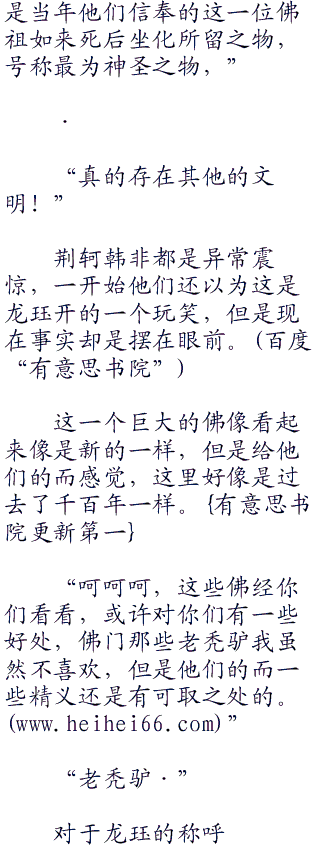 是当年他们信奉的这一位佛
祖如来死后坐化所留之物，
号称最为神圣之物，”
·
“真的存在其他的文
明！”
荆轲韩非都是异常震
惊，一开始他们还以为这是
龙珏开的一个玩笑，但是现
在事实却是摆在眼前。(百度
“有意思书院”)
这一个巨大的佛像看起
来像是新的一样，但是给他
们的而感觉，这里好像是过
去了千百年一样。{有意思书
院更新第一}
“呵呵呵，这些佛经你
们看看，或许对你们有一些
好处，佛门那些老秃驴我虽
然不喜欢，但是他们的而一
些精义还是有可取之处的。
(www.heihei66.com)”
“老秃驴·”
对于龙珏的称呼